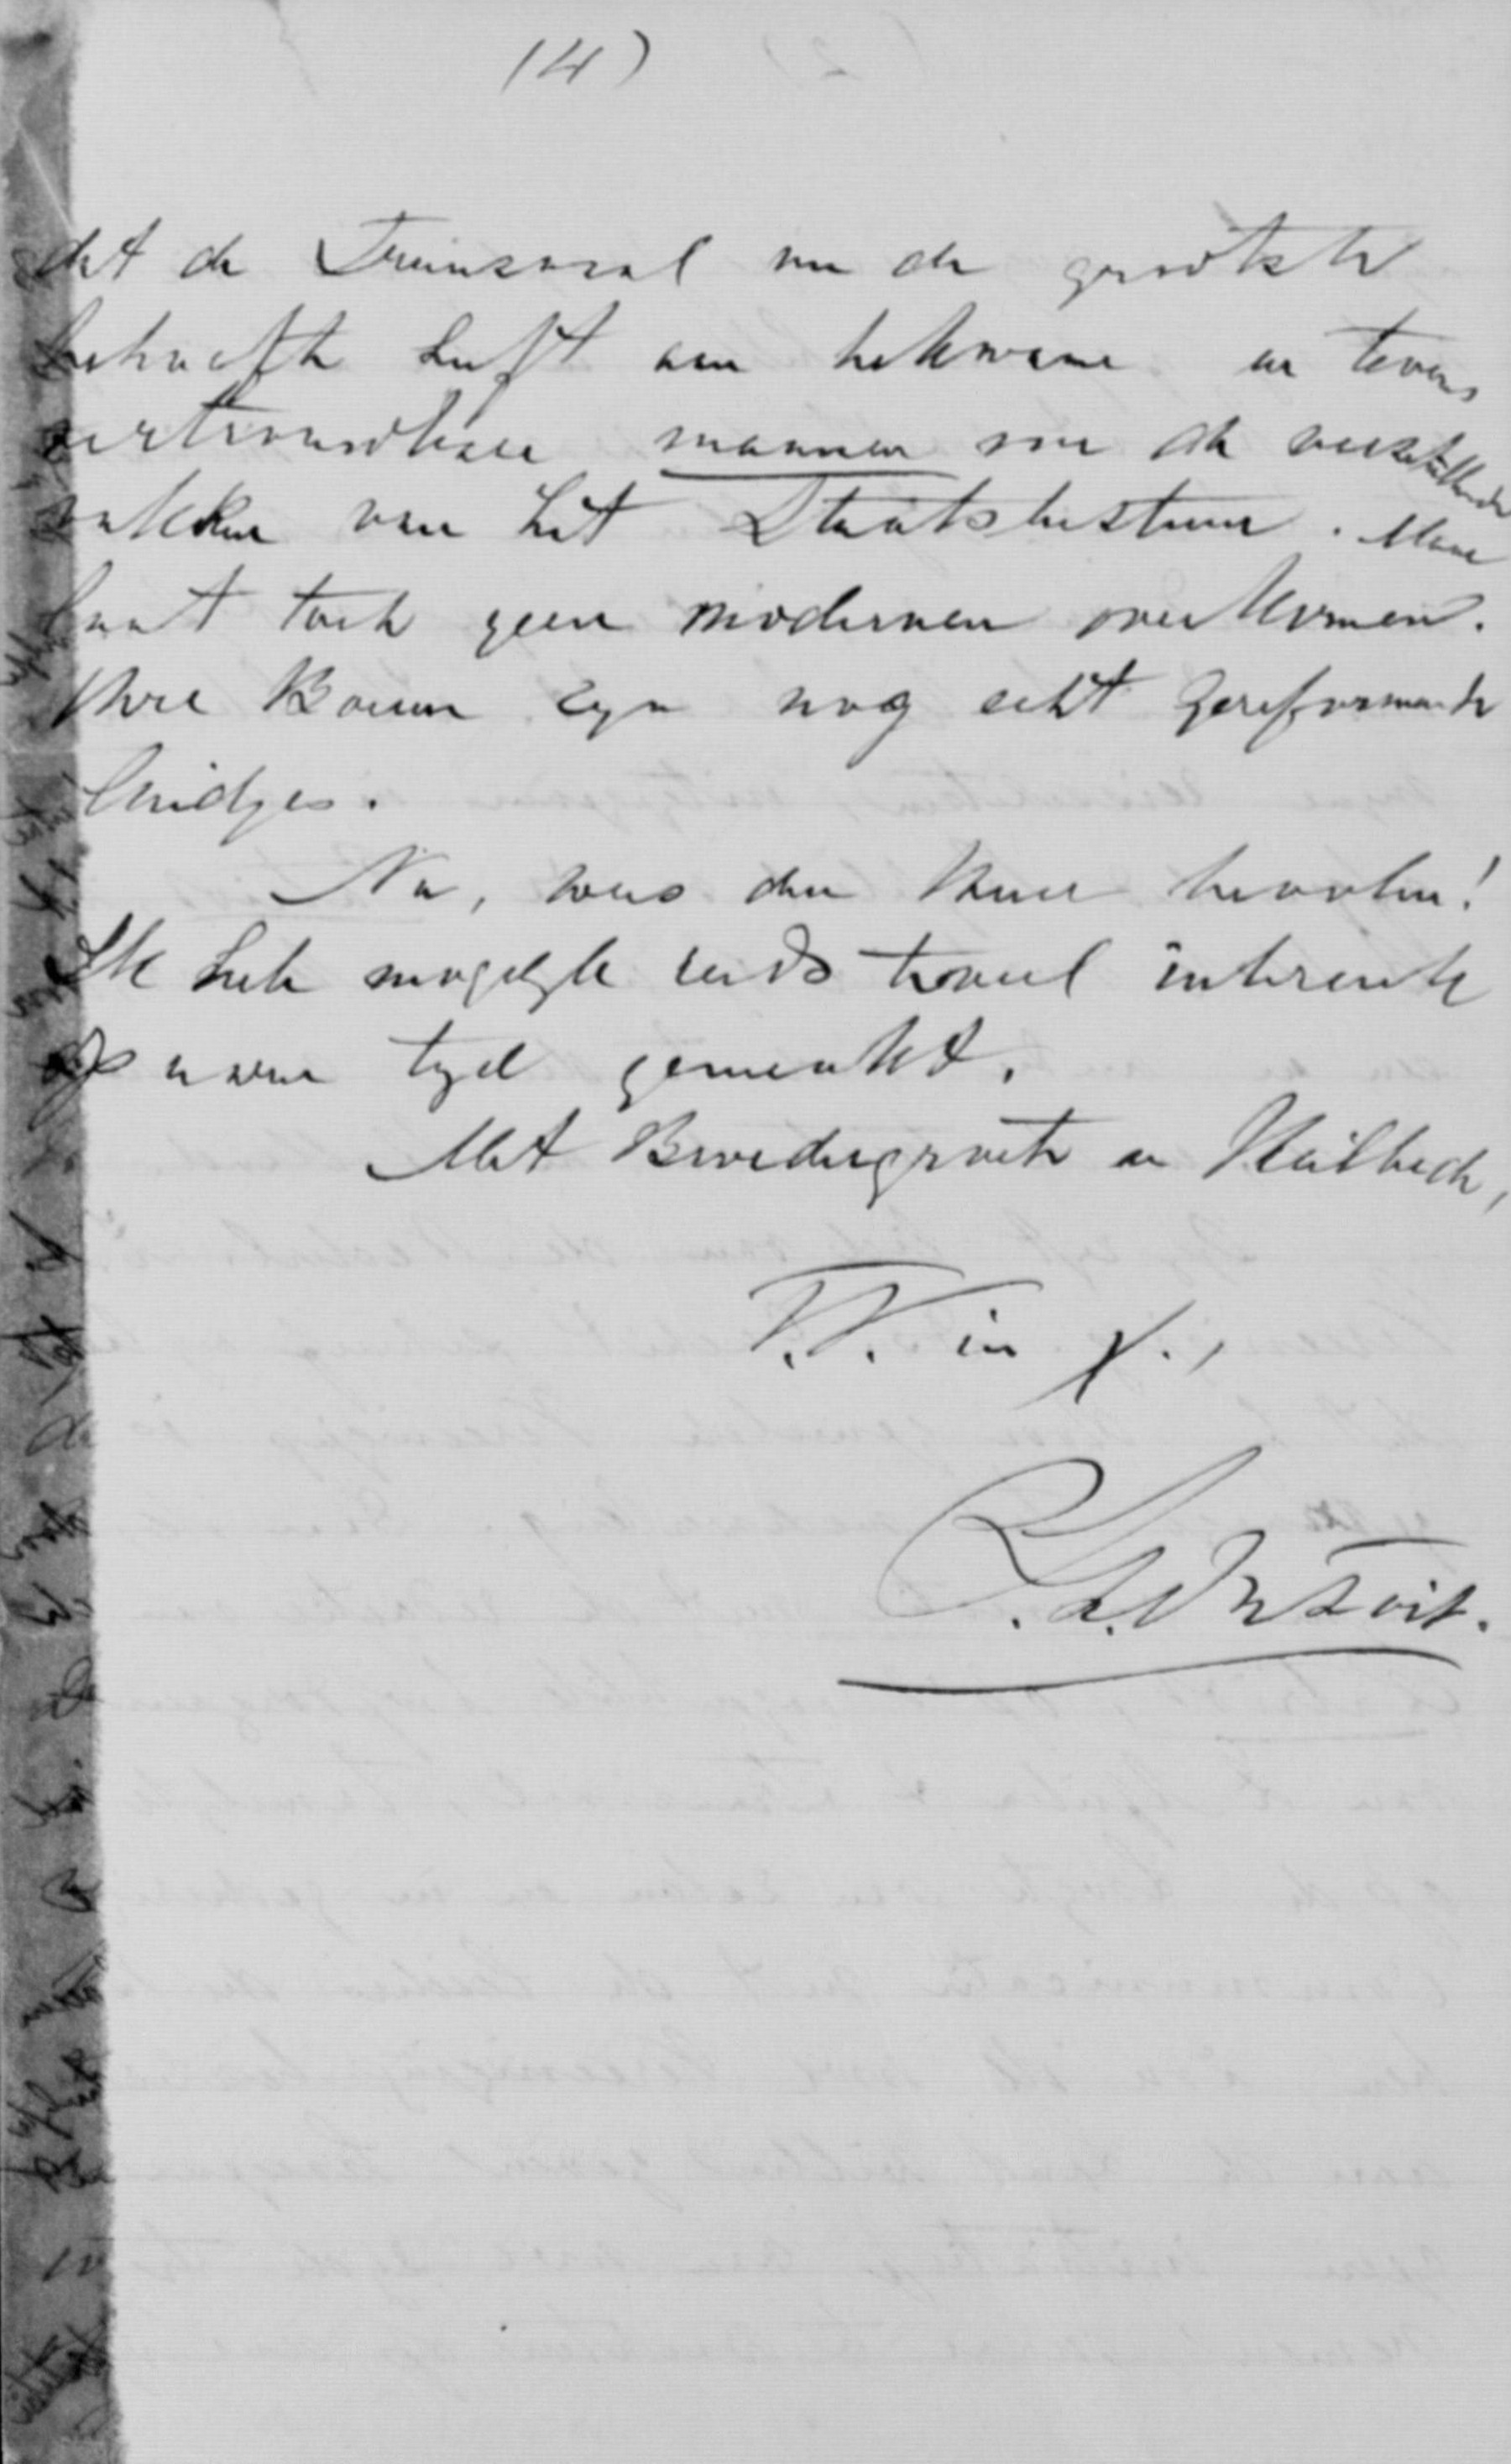 (4)
dat de Transvaal nu de grootste
behoefte heeft aan bekwame en tevens
vertrouwbare mannen om de verschillende
vakken van het Staatsbestuur. Maar
laat toch geen modernen overkomen.
Onze Boeren zyn nog echt Gereformeerde
luidjes.
Nu, wees den Heere bevolen!
Ik heb mogelyk reeds teveel inbreuk
op uwen tyd gemaakt.
Met Broedergroete en Heilbede,
T.T. in X.,
S. J. du Toit.